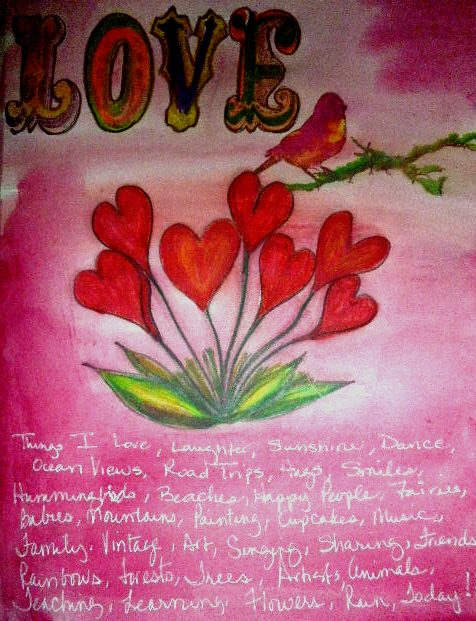 LOVE
Things I Love, Laughter, Sunshine, Dance,
Ocean Views, Road Trips, Hugs, Smiles,
Hummingbirds, Beaches, Happy People, Fairies,
Babies, Mountains, Painting, Cupcakes, Music,
Family, Vintage, Art, Singing, Sharing, Friends
Rainbows, Forests, Trees, Artists, Animals,
Teaching, Learning, Flowers, Rain, Today!